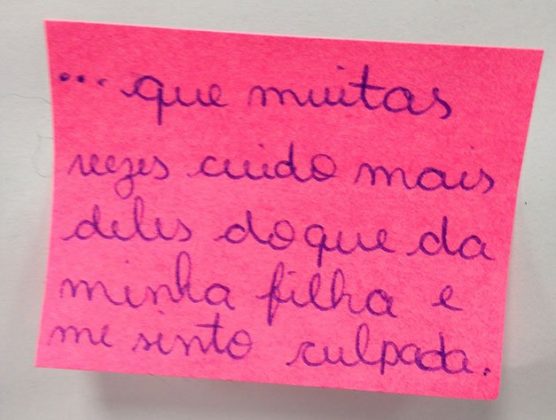 ... que muitas
vezes cuido mais
deles doque da
minha filha e
me sinto culpada.